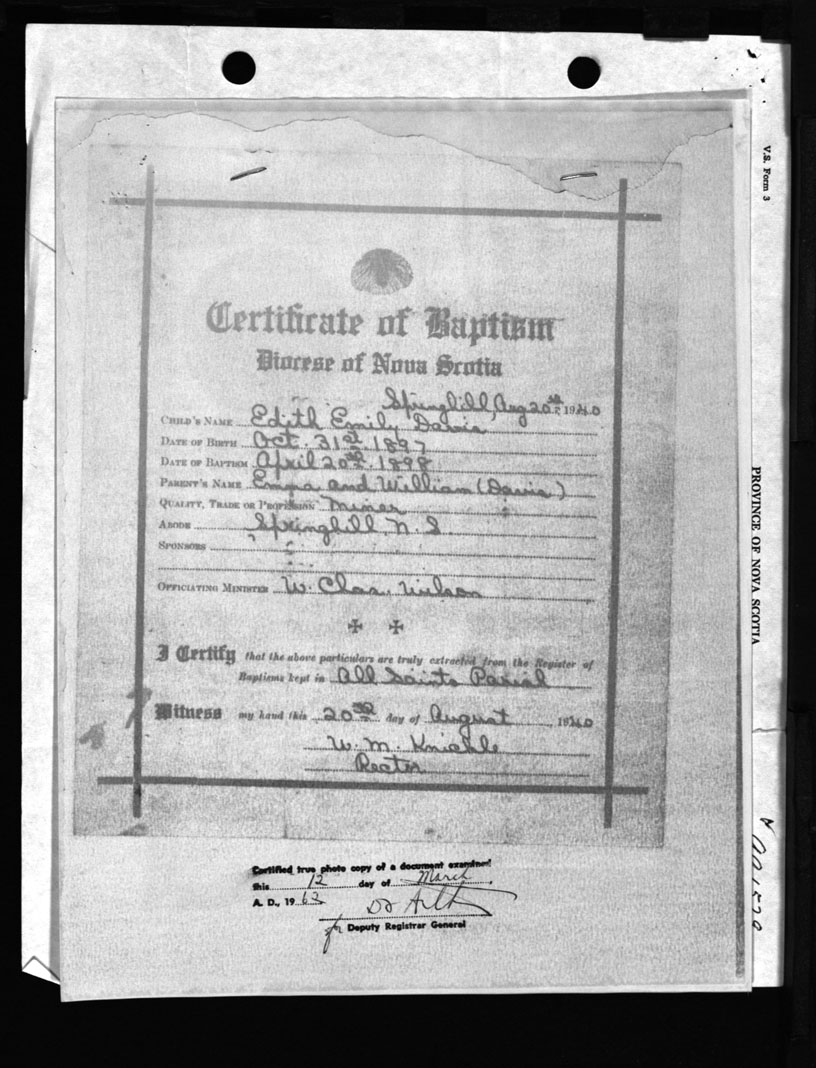 Certificate of Baptism
Diocese of Nova Scotia
Springhill, Aug 20th 1940
CHILD'S NAME Edith Emily Davis
DATE OF BIRTH Oct. 31st 1897
DATE OF BAPTISM April 20th 1898
PARENT'S NAME Emma and William (Davis)
QUALITY, TRADE OR PROFESSION Miner
ABODE Springhill, N. S.
SPONSORS
OFFICIATING MINISTER W. Chas. Wilson
I Certify that the above particulars are truly extracted from the Register of
Baptisms kept in All Saints Parish
Witness my hand this 20th day of August 1940
W. M.
Rector
Certified true photo copy of a document examined
this 12 day of March
A. D., 1963
for Deputy Registrar General
V.S. Form 3
PROVINCE OF NOVA SCOTIA